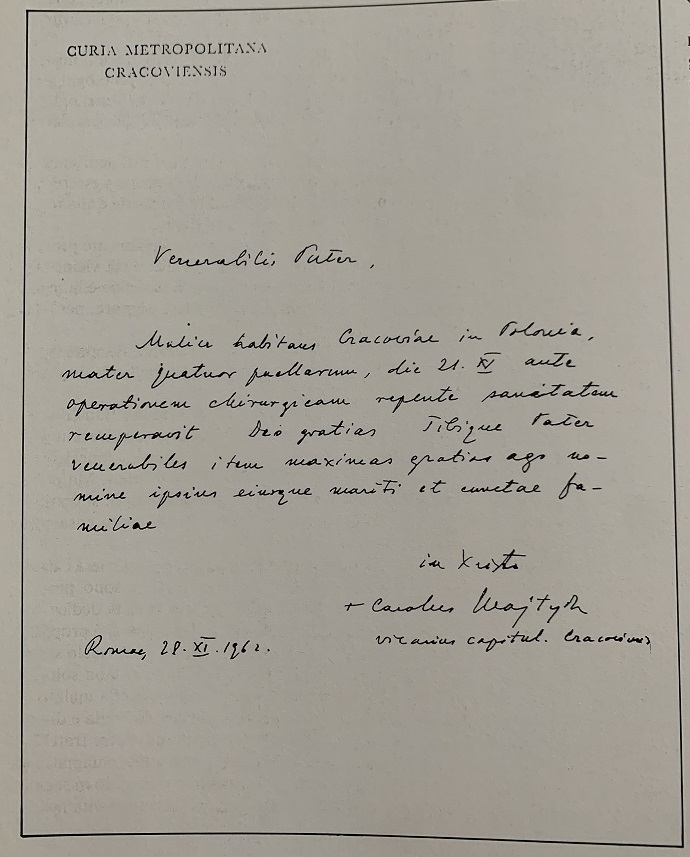 CURIA METROPOLITANA
CRACOVIENSIS
Venerabilis Pater,
Mulier habitans Cracoviae in Polonia,
mater quatuor puellarum, die 21. XI ante
operationem chirurgicam repente sanitatem
recuperavit Deo gratias Tibique Pater
venerabiles item maximas gratias ago no-
mine ipsius eiusque mariti et cunctae fa-
miliae
in Xristo
+ Carolus Wojtyła
vicarius capitul. Cracoviensis
Romae, 28. XI. 1962.